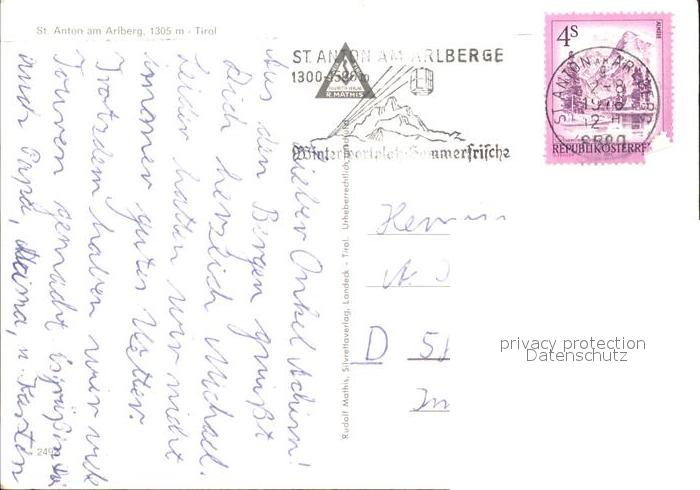 St. Anton am Arlberg, 1305 m - Tirol
ST. ANTON AM ARLBERGE
1300-
R. MATHIS
Wintersportplatz Sommerfrische
4S
ALMSEE
REPUBLIK ÖSTERRE
ST. ANTON A. ARLBERG
1978
Lieber Onkel Achim!
Aus den Bergen grüßt
Dich herzlich Michael.
Leider hatten wir nicht
immer gutes Wetter.
Trotzdem haben wir viele
Touren gemacht. Es grüßen Dich
auch Papa, Mama, u. Karsten
Rudolf Mathis, Silvrettaverlag, Landeck - Tirol. Urheberrechtlich
Herrn
D 51
Im
249
privacy protection
Datenschutz